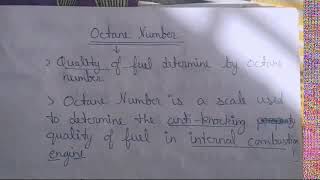 Octane Number
↓
> Quality of fuel determine by octane
number.
> Octane Number is a scale used
to determine the anti-knocking
quality of fuel in internal combustion
engine